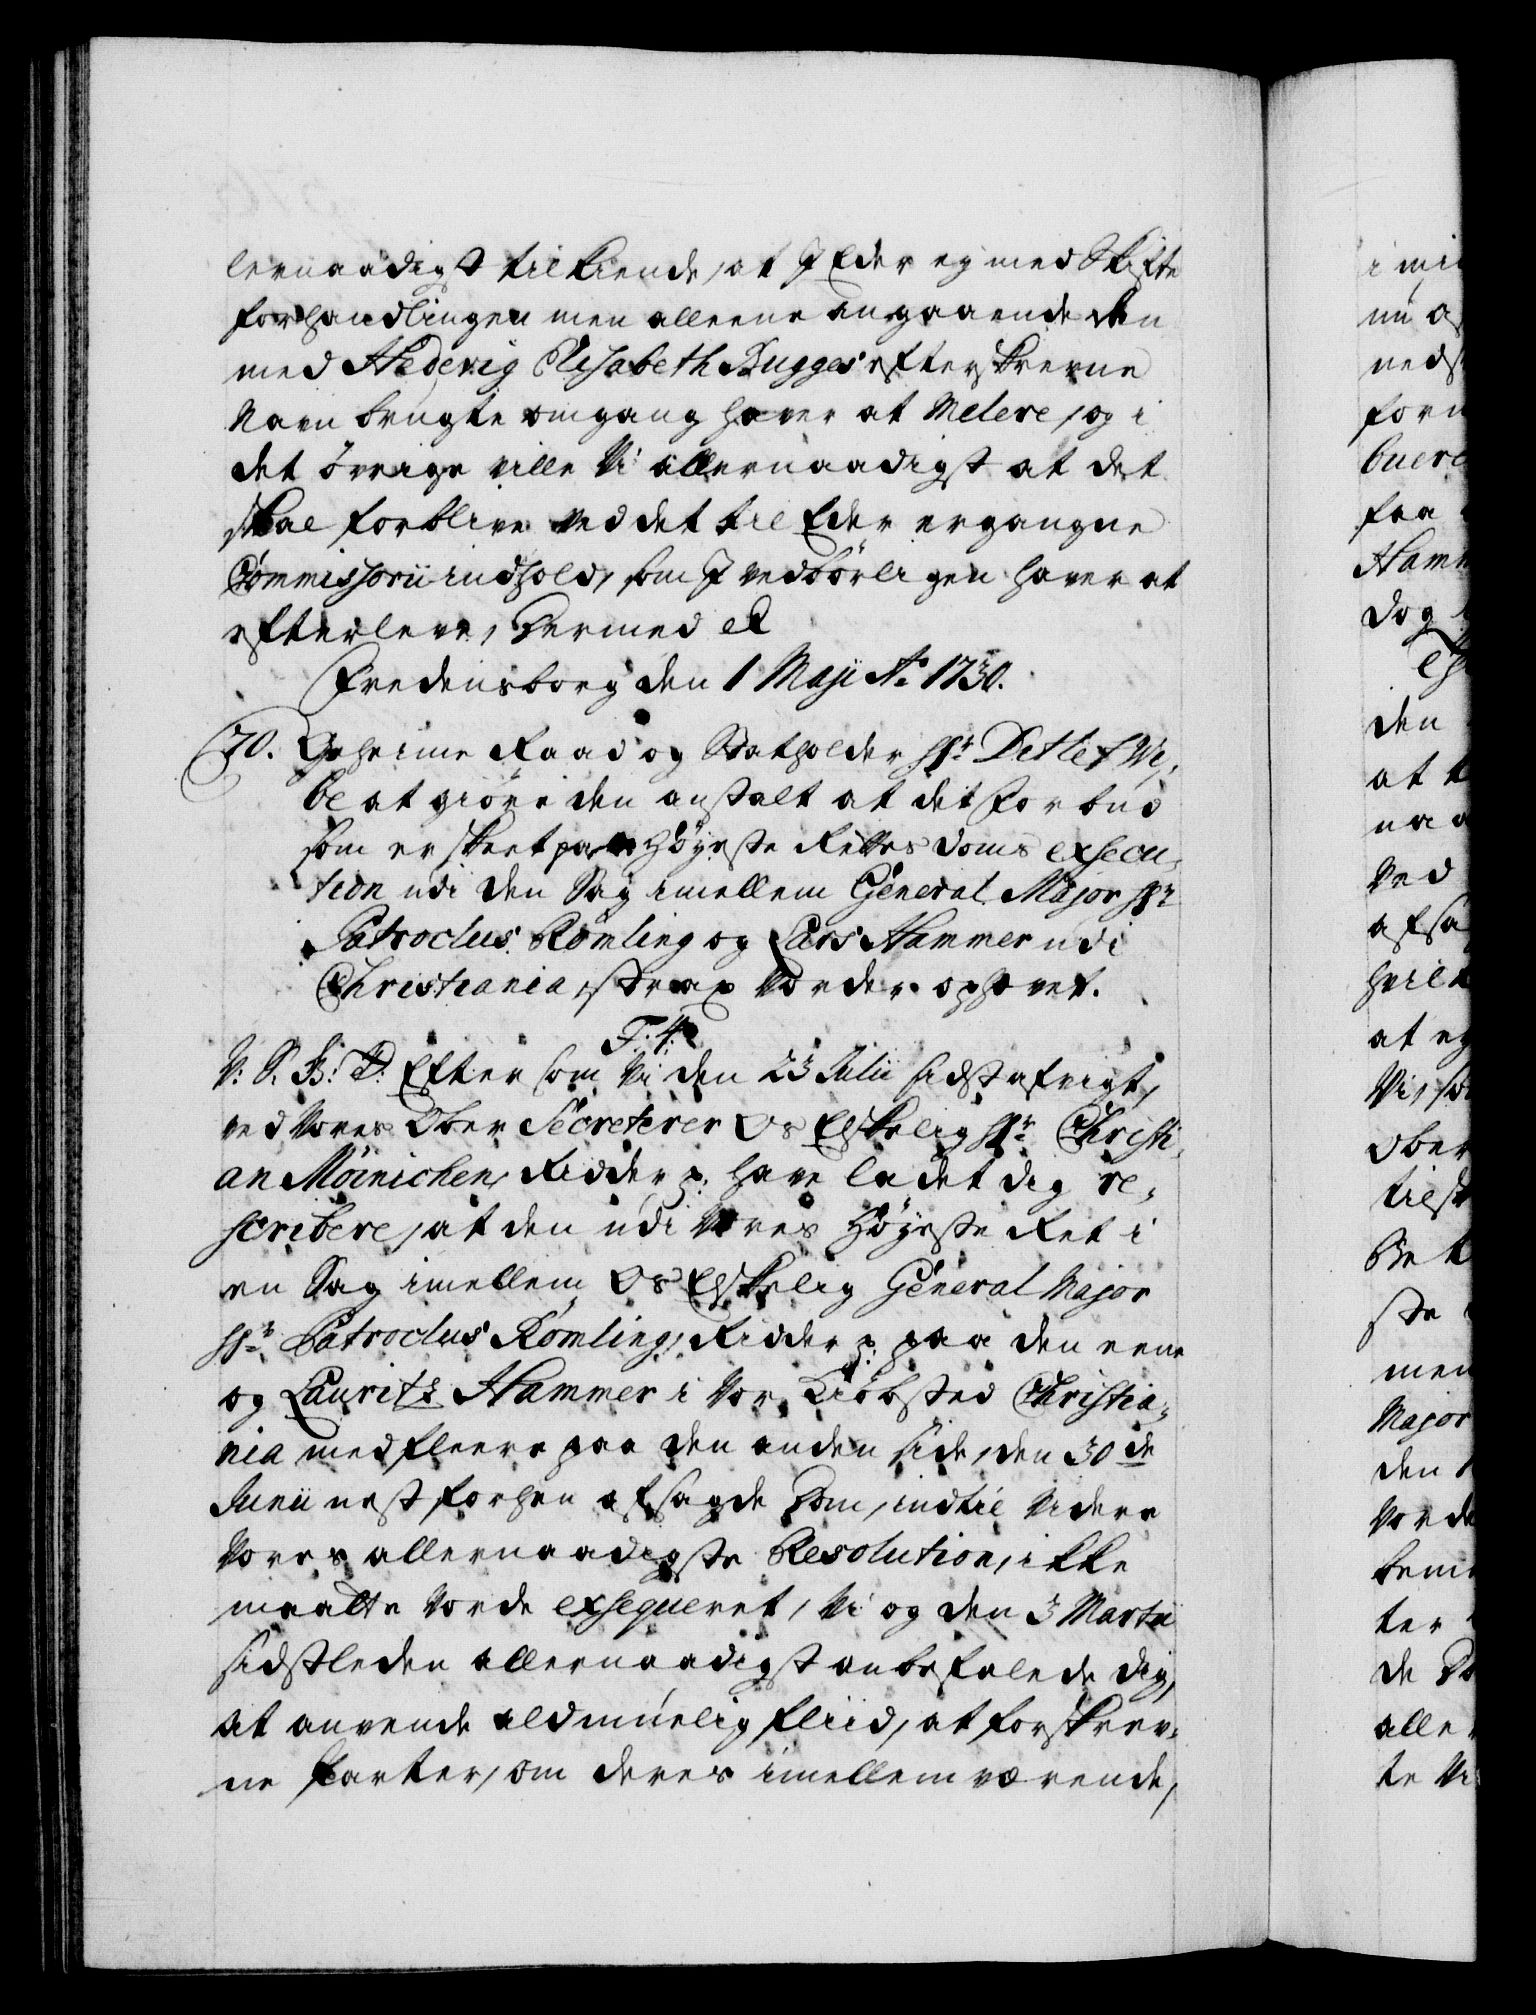 lernaadigst tilkiende, at I Eder ey med Skifte
forhandlingen men alleene angaaende den
med Hedevig Elisabeth Bugges efterskrevne
Navn brugte omgang haver at Melere, og i
det övrige ville Vi allernaadigst at det
skal forblive ved det til Eder ergangne
Commissorii indhold, som I vedbörligen haver at
efterleve, Hermed etc
Fredensborg den 1 Maji Ao 1730.
70. Geheime Raad og Statholder Hr. Ditlef Wi,
be at giöre den anstalt at det forbud
som er skeet paa Höyeste Rettes doms exsecu,
tion udi den Sag imellem General Major Hr.
Patroclus Römling og Lars Hammer udi
Christiania, strax vorder ophævet.
F: 4.
V: S. G: T: Efter som Vi den 23 Julii sidst afvigt,
ved Vores Ober Secreterer Os Elskelig Hr. Christi,
an Möinichen, Ridder p: have ladet dig re,
scribere, at den udi Vores Höyeste Ret i
en Sag imellem Os Elskelig General Major
Hr. Patroclus Römling, Ridder p: paa den eene
og Lauritz Hammer i Vor Kiöbsted Christia,
nia med fleere paa den anden side, den 30de
Junii nest forhen afsagde Dom, indtil videre
Vores allernaadigste Resolution, ikke
maatte vorde exseqveret, Vi og den 3 Martii
sidstleden allernaadigst anbefalede dig,
at anvende aldmuelig fliid, at forskrev,
ne Parter, om deres imellem værende,